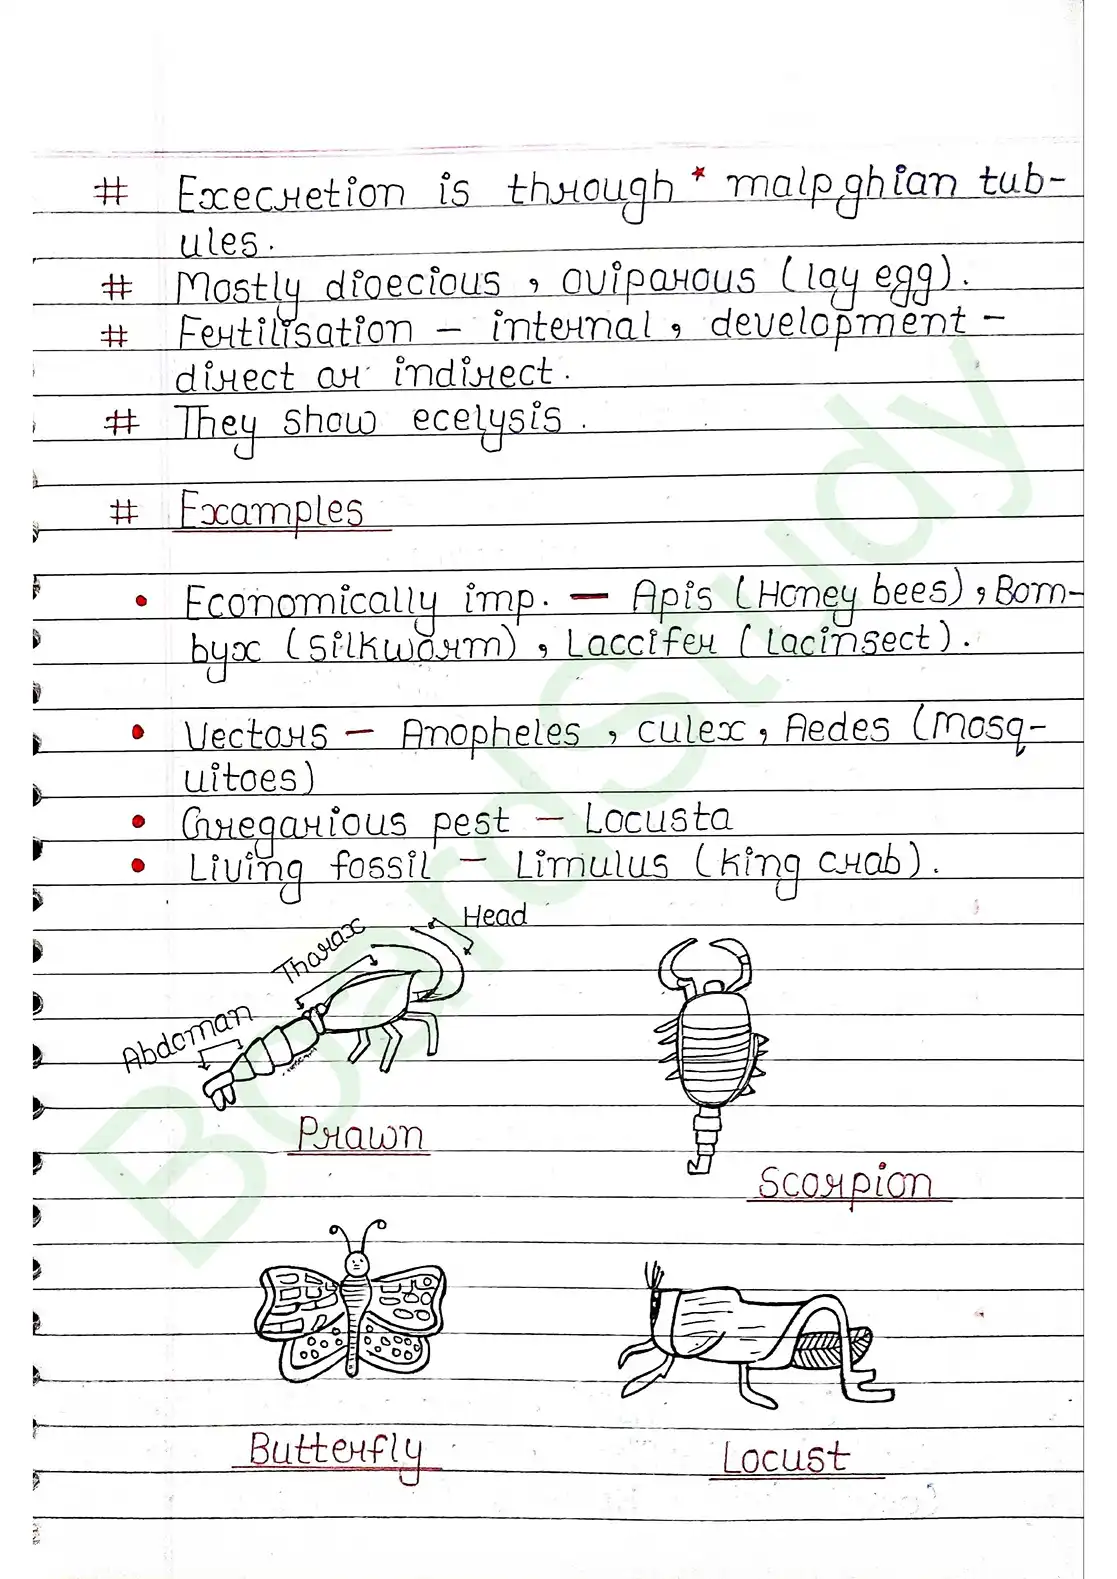 # Execretion is through * malpghian tub-
ules.
# Mostly dioecious, oviparous (lay egg).
# Fertilisation - internal, development -
direct or indirect.
# They show ecelysis.
# Examples
• Economically imp. - Apis (Honey bees), Bom-
byx (silkworm), Laccifer (lacinsect).
• Vectors - Anopheles, culex, Aedes (Mosq-
uitoes)
• Gregarious pest - Locusta
• Living fossil - Limulus (king crab).
Head
Thorax
Abdoman
Prawn
Scorpion
Butterfly
Locust
BoardStudy